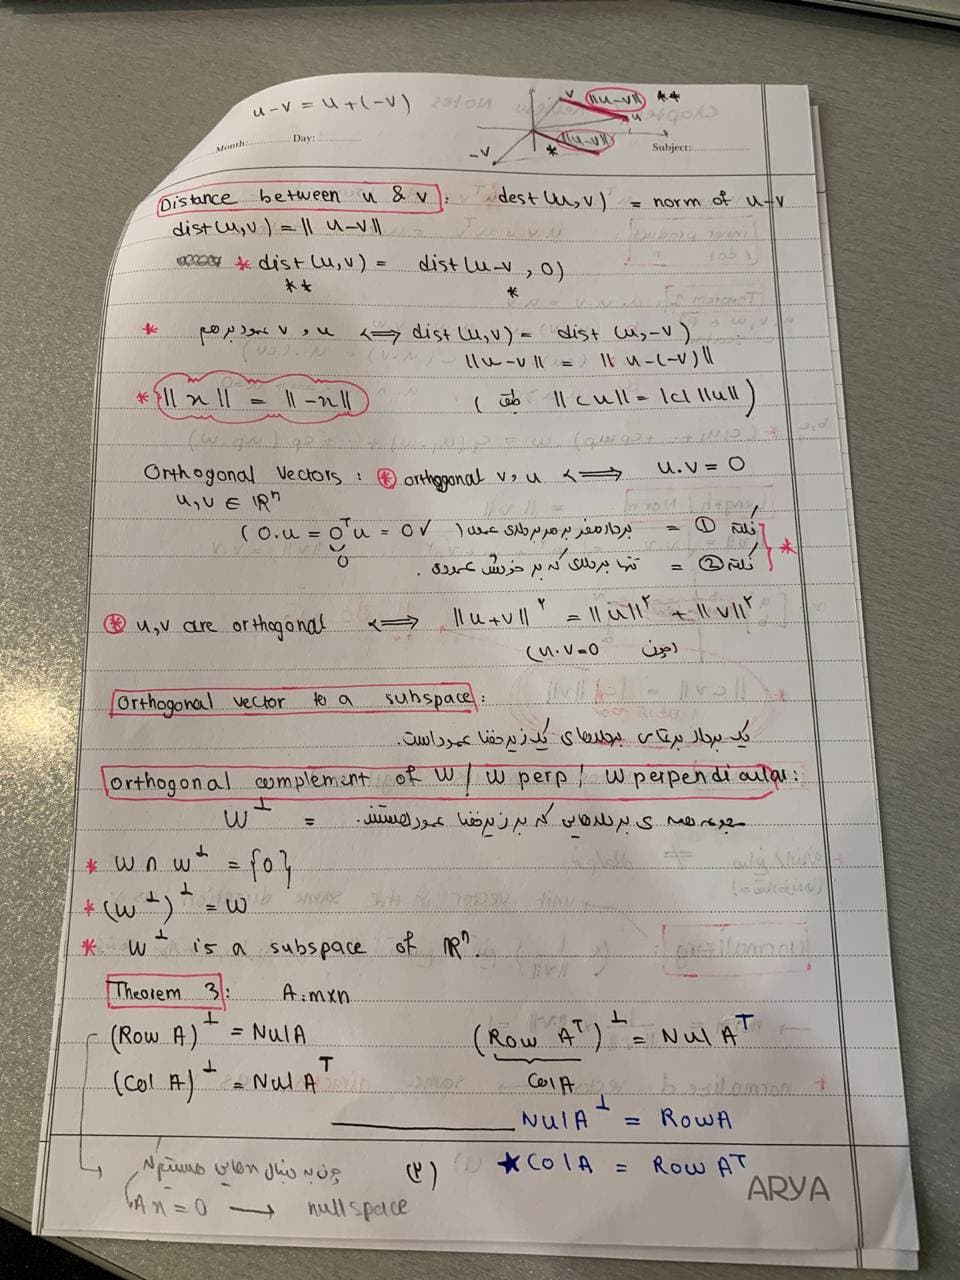 u-v = u+(-v)
v ||u-v|| **
u
||u-v||
-v *
Month: Day: Subject:
Distance between u & v : dest(u,v) = norm of u-v
dist(u,v) = || u-v||
* dist(u,v) = dist(u-v , 0)
** *
* u و v عمود برهم <=> dist(u,v) = dist(u,-v)
||u-v|| = || u-(-v)||
* ||x|| = ||-x|| ( طبق ||cu|| = |c| ||u|| )
Orthogonal Vectors : * orthogonal v, u <=> u.v = 0
u,v ∈ ℝⁿ
نکته ① = بردار صفر بر هر برداری عمود (0.u = 0ᵀu = 0 ✓
0
نکته ② = تنها برداری که بر خودش عموده . *
* u,v are orthogonal <=> ||u+v||² = ||u||² + ||v||²
(چون u.v=0)
Orthogonal vector to a subspace :
یک بردار بر تمامی بردارهای یک زیرفضا عمود است.
Orthogonal complement of W / W perp / W perpendicular :
W⊥ = مجموعه همه ی بردارهایی که بر زیرفضا عمود هستند.
* W ∩ W⊥ = {0}
* (W⊥)⊥ = W
* W⊥ is a subspace of ℝⁿ.
Theorem 3 : A: m×n
(Row A)⊥ = Nul A (Row Aᵀ)⊥ = Nul Aᵀ
(Col A)⊥ = Nul Aᵀ Col A
Nul A⊥ = Row A
★ Col A = Row Aᵀ
چون به دنبال x هایی هستیم که (۲)
Ax = 0 → nullspace
ARYA